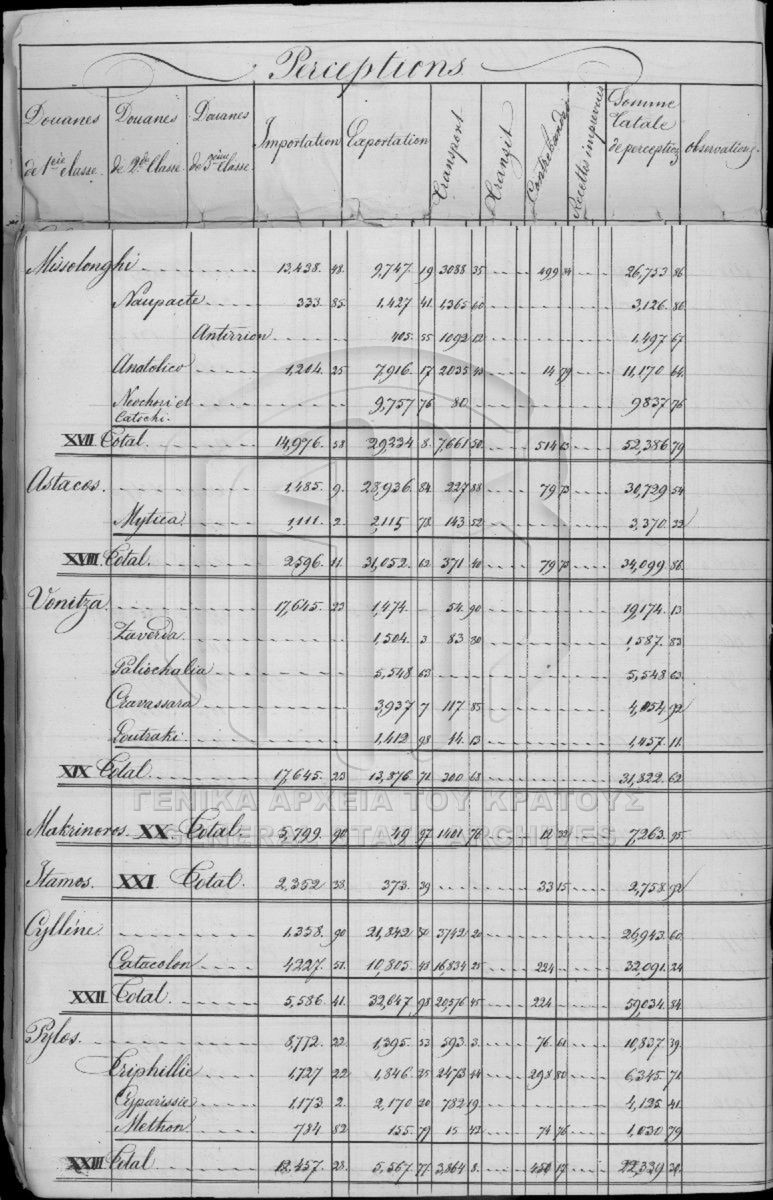 Perceptions
Douanes de 1ère classe. Douanes de 2de Classe Douanes de 3ème classe Importation Exportation Transport Transit Contrebandes Recettes imprevues Somme Totale de perceptions Observations
Missolonghi 13,438. 48. 9,747 19 3088 35 499 84 26,753 86
Naupacte 333 85. 1,427 41 1,365 60 3,126. 86
Antirrion 405. 55 1092 12 1,497 67
Anatolico 1,204. 25 7,916. 17 2035 43 14 79 11,170 64.
Neochori et Catochi. 9,757 76 80 9837 76
XVII Total. 14,976. 58 29,234 8. 7,661 50. 514 63 52,386 79
Astacos. 1,485. 9. 28,936 84. 227 88 79 73 30,729 54
Mytica 1,111. 2. 2,115 78 143 52 3,370 32
XVIII Total. 2596. 11. 31,052. 62 371 40 79 73 34,099 86
Vonitza 17,645. 23 1,474. 54. 90 19,174. 13
Zaverda. 1,504. 3 83 80 1,587. 83
Paliochalia 5,548 63 5,548 63
Cravassara 3,937 7 117 85 4,054 92
Loutraki 1,412 98 44. 13 1,457. 11
XIX Total 17,645. 23 13,876 71 300 68 31,822. 62
ΓΕΝΙΚΑ ΑΡΧΕΙΑ ΤΟΥ ΚΡΑΤΟΥΣ
Makrinoros. XX Total 5,799. 90 49 97 1401 76 12 32 7,263. 95
GENERAL STATE ARCHIVES
Itamos. XXI Total. 2,352 38. 373. 39 33 15 2,758. 92
Cyllène 1,358. 90 21,842 50 3742 20 26,943. 60
Catacolon 4227. 51. 10,805 48 16,834 25 224 32,091. 24
XXII Total. 5,586. 41. 32,647 98 20,576 45 224 59,034. 84
Pylos. 8,772. 22. 1,395. 53 593 3. 76. 61 10,837 39
Triphillie 1,727 22 1,846 25 2473 44 298 80 6,345. 71
Cyparissia 1,173 2. 2,170 20 782 19. 4,125. 41
Methon 784 82 155 79 15 42 74 76 1,030 79
XXIII Total 12,457. 28. 5,567 77 3,864 8. 450 17 22,339 30